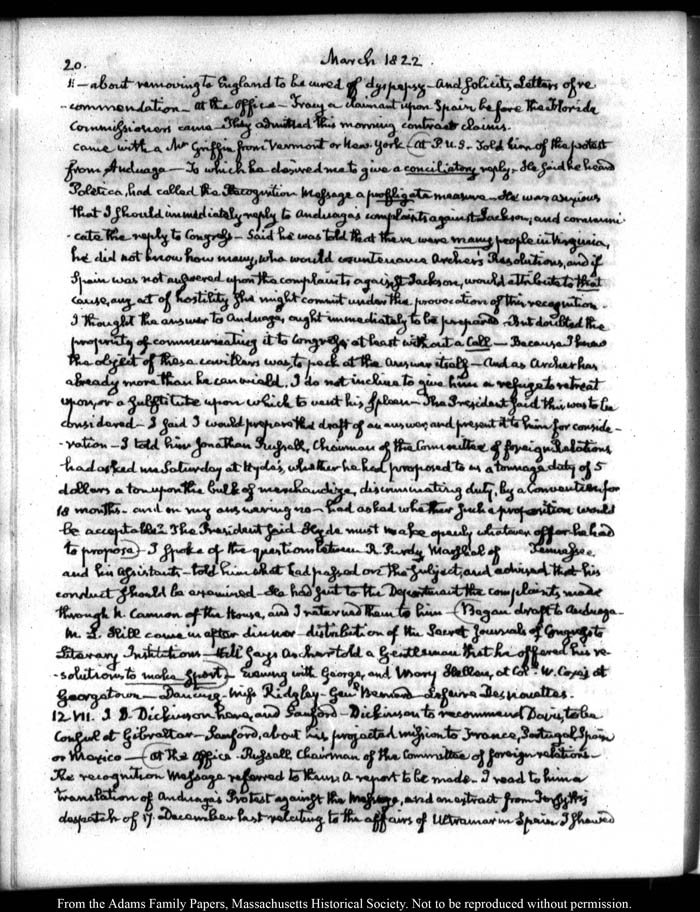 20. March 1822.
11 — about removing to England to be cured of dyspepsy — And solicits Letters of re
-commendation — At the Office — Tracy a claimant upon Spain before the Florida
Commissioners came — They admitted this morning contract claims.
came with a Mr Griffin from Vermont or New York (At P.U.S. Told him of the protest
from Anduaga — To which he desired me to give a conciliatory reply — He said he heard
Poletica, had called the Recognition Message a profligate measure — He was anxious
that I should immediately reply to Anduaga's complaints against Jackson, and communi
-cate the reply to Congress — Said he was told that there were many people in Virginia,
he did not know how many, who would countenance Archer's Resolutions, and if
Spain was not answered upon the complaints against Jackson, would attribute to that
cause, any act of hostility she might commit under the provocation of this recognition.
I thought the answer to Anduaga, ought immediately to be prepared. But doubted the
propriety of communicating it to Congress at least without a Call — Because I knew
the object of these cavillers was, to peck at the Answer itself — And as Archer has
already more than he can wield, I do not incline to give him a refuge to retreat
upon, or a substitute upon which to vent his spleen — The President said this was to be
considered — I said I would prepare the draft of an answer, and present it to him for conside-
-ration — I told him Jonathan Russell, Chairman of the Committee of foreign Relations
had asked me Saturday at Hyde's, whether he had proposed to us a tonnage duty of 5
dollars a ton upon the bulk of merchandize, discriminating duty, by a Convention for
18 months — and on my answering no — had asked whether such a proposition would
be acceptable? The President said Hyde must make openly whatever offer he had
to propose) — I spoke of the question between R. Purdy Marshal of Tennessee
and his Assistants — told him what had passed on the subject, and advised that his
conduct should be examined — He had sent to the Department the complaints, made
through N. Cannon of the House, and I returned them to him — (Began draft to Anduaga —
M. L. Hill came in after dinner — distribution of the Secret Journals of Congress to
Literary Institutions — Hill says Archer told a Gentleman that he offered his re-
-solutions to make sport) — Evening with George, and Mary Hellen, at Coll. W. Cox's at
Georgetown — Dancing. Miss Ridgley — Genl. Bernard — Lefevre Desnouettes.
12. VII. J. D. Dickinson here, and Sanford — Dickinson to recommend Davis, to be
Consul at Gibraltar — Sanford, about his projected mission to France, Portugal, Spain
or Mexico — (At the Office — Russell, Chairman of the Committee of foreign relations —
The recognition Message referred to them: A report to be made — I read to him a
translation of Anduaga's Protest against the Message, and an extract from Forsyth's
despatch of 17. December last relating to the affairs of Ultramar in Spain I shewed
From the Adams Family Papers, Massachusetts Historical Society. Not to be reproduced without permission.